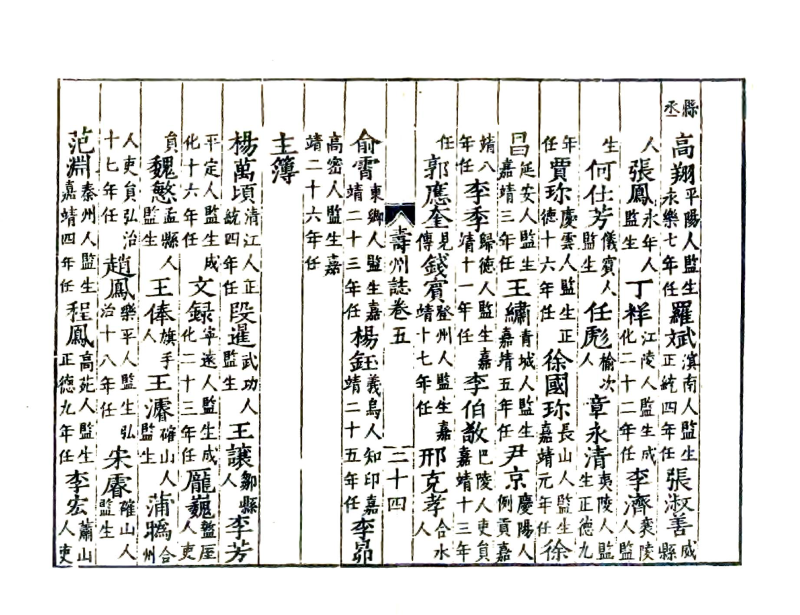 縣丞
高翔平陽人監生永樂七年任羅斌滇南人監生正統四年任張淑善威縣
人張鳳永年人監生丁祥江陵人監生成化二十二年任李濟陵人監
生何仕芳儀賓人監生任彪榆次人章永清夷陵人監生正德九
年任賈珎慶雲人監生正德十六年任徐國珎長山人監生嘉靖元年任徐
昌延安人監生嘉靖三年任王繡青城人監生嘉靖五年任尹京慶陽人例貢嘉
靖八年任李季歸德人監生嘉靖十一年任李伯敬巴陵人吏員嘉靖十三年
任郭應奎見傳錢賓登州人監生嘉靖十七年任邢克孝合水人
壽州誌卷五 三十四
俞霄東鄉人監生嘉靖二十三年任楊鈺義烏人知印嘉靖二十五年任李昴
高密人監生嘉靖二十六年任
主簿
楊萬頃清江人正統四年任段暹武功人監生王讓鄒縣人李芳
平定人監生成化十六年任文録寧遠人監生成化二十三年任龎巍盩厔人吏
員魏慜孟縣人監生王俸旗手人王濬確山人監生蒲合州
人吏員弘治十七年任趙鳳樂平人監生弘治十八年任宋確山人監生
范淵秦州人監生嘉靖四年任程鳳高苑人監生正德九年任李宏蕭山人吏